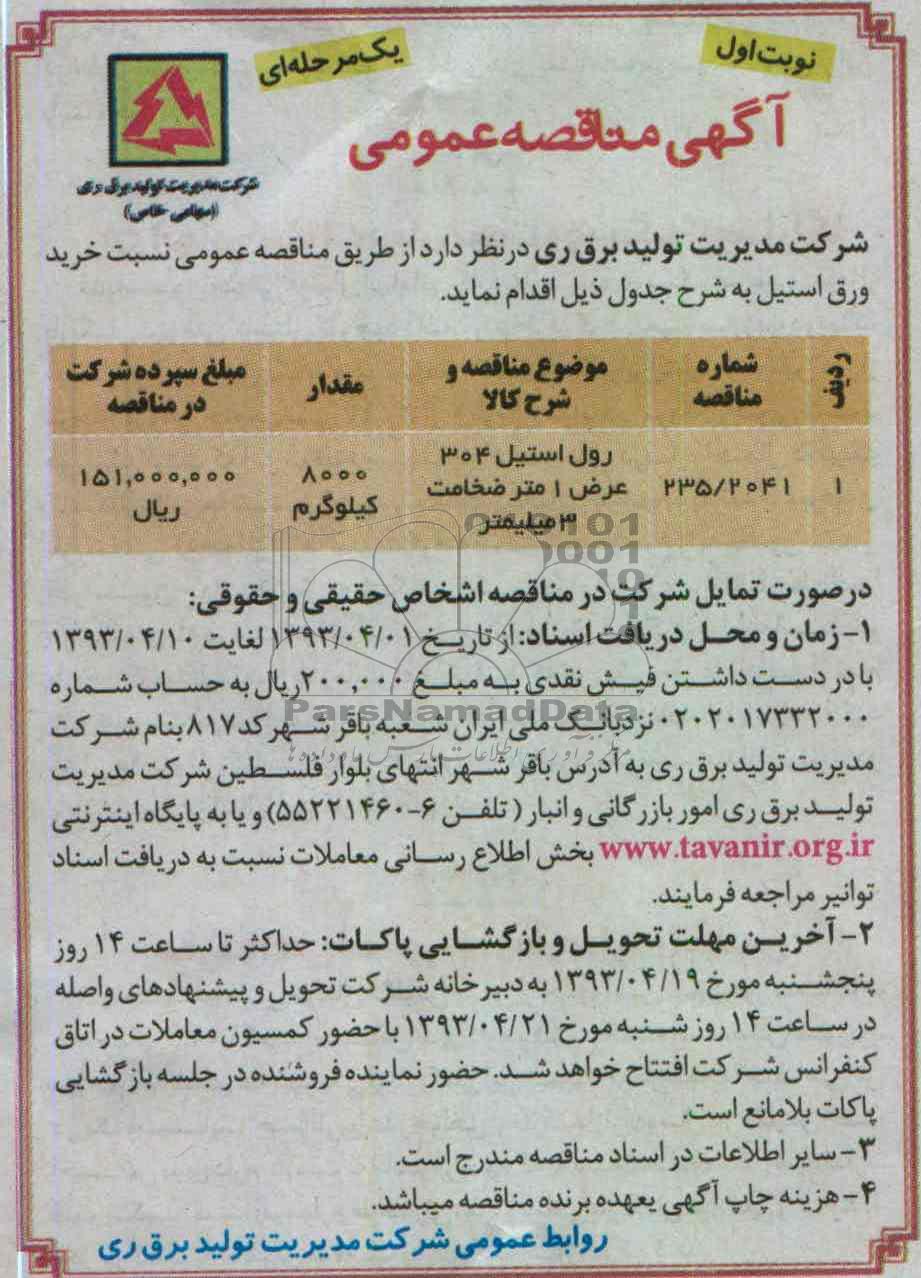 نوبت اول
یک مرحله‌ای
آگهی مناقصه عمومی
شرکت مدیریت تولید برق ری
(سهامی خاص)
شرکت مدیریت تولید برق ری در نظر دارد از طریق مناقصه عمومی نسبت خرید
ورق استیل به شرح جدول ذیل اقدام نماید.
ردیف
شماره مناقصه
موضوع مناقصه و شرح کالا
مقدار
مبلغ سپرده شرکت در مناقصه
۱
۲۳۵/۲۰۴۱
رول استیل ۳۰۴
عرض ۱ متر ضخامت
۳ میلیمتر
۸۰۰۰
کیلوگرم
۱۵۱,۰۰۰,۰۰۰
ریال
درصورت تمایل شرکت در مناقصه اشخاص حقیقی و حقوقی:
۱- زمان و محل دریافت اسناد: از تاریخ ۱۳۹۳/۰۴/۰۱ لغایت ۱۳۹۳/۰۴/۱۰
با در دست داشتن فیش نقدی به مبلغ ۲۰۰,۰۰۰ریال به حساب شماره
۰۲۰۲۰۱۷۳۳۲۰۰۰ نزد بانک ملی ایران شعبه باقر شهر کد ۸۱۷ بنام شرکت
مدیریت تولید برق ری به آدرس باقر شهر انتهای بلوار فلسطین شرکت مدیریت
تولید برق ری امور بازرگانی و انبار ( تلفن ۶-۵۵۲۲۱۴۶۰) و یا به پایگاه اینترنتی
www.tavanir.org.ir بخش اطلاع رسانی معاملات نسبت به دریافت اسناد
توانیر مراجعه فرمایند.
۲- آخرین مهلت تحویل و بازگشایی پاکات: حداکثر تا ساعت ۱۴ روز
پنجشنبه مورخ ۱۳۹۳/۰۴/۱۹ به دبیرخانه شرکت تحویل و پیشنهادهای واصله
در ساعت ۱۴ روز شنبه مورخ ۱۳۹۳/۰۴/۲۱ با حضور کمسیون معاملات در اتاق
کنفرانس شرکت افتتاح خواهد شد. حضور نماینده فروشنده در جلسه بازگشایی
پاکات بلامانع است.
۳- سایر اطلاعات در اسناد مناقصه مندرج است.
۴- هزینه چاپ آگهی یعهده برنده مناقصه میباشد.
روابط عمومی شرکت مدیریت تولید برق ری
ParsNamadData